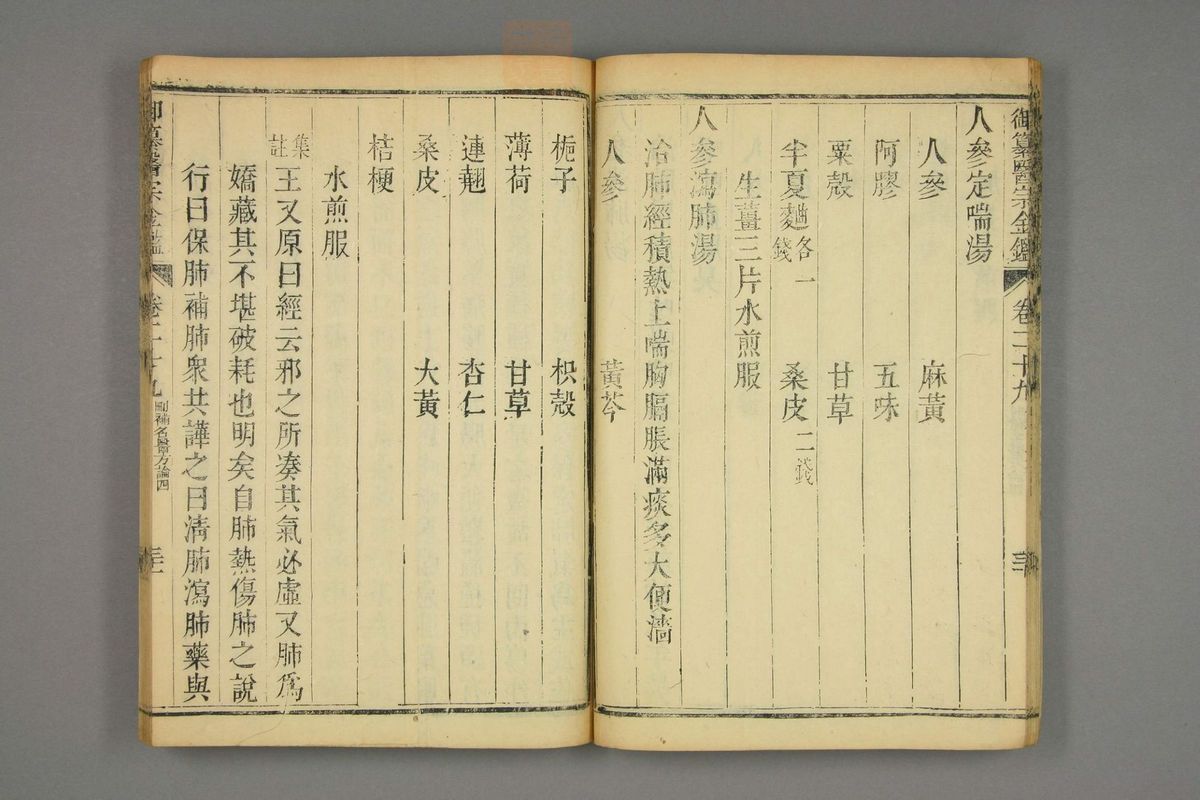 御纂醫宗金鑑 卷二十九
人參定喘湯
人參 麻黃
阿膠 五味
粟殼 甘草
半夏麯各一錢 桑皮二錢
生薑三片水煎服
人參瀉肺湯
治肺經積熱上喘胸膈脹滿痰多大便濇
人參 黃芩
梔子 枳殼
薄荷 甘草
連翹 杏仁
桑皮 大黃
桔梗
水煎服
集註王又原曰經云邪之所凑其氣必虛又肺爲
嬌藏其不堪破耗也明矣自肺熱傷肺之說
行曰保肺補肺衆共譁之曰清肺瀉肺藥與
御纂醫宗金鑑 卷二十九 刪補名醫方論四